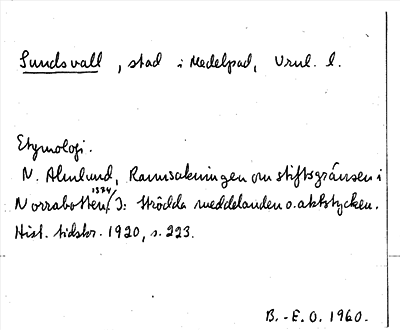 Sundsvall, stad i Medelpad, Vrnl. l.
Etymologi.
N. Ahnlund, Rannsakningen om stiftsgränsen i
Norrabotten 1374/ I: Strödda meddelanden o. aktstycken.
Hist. tidskr. 1920, s. 223.
B.-E. O. 1960.